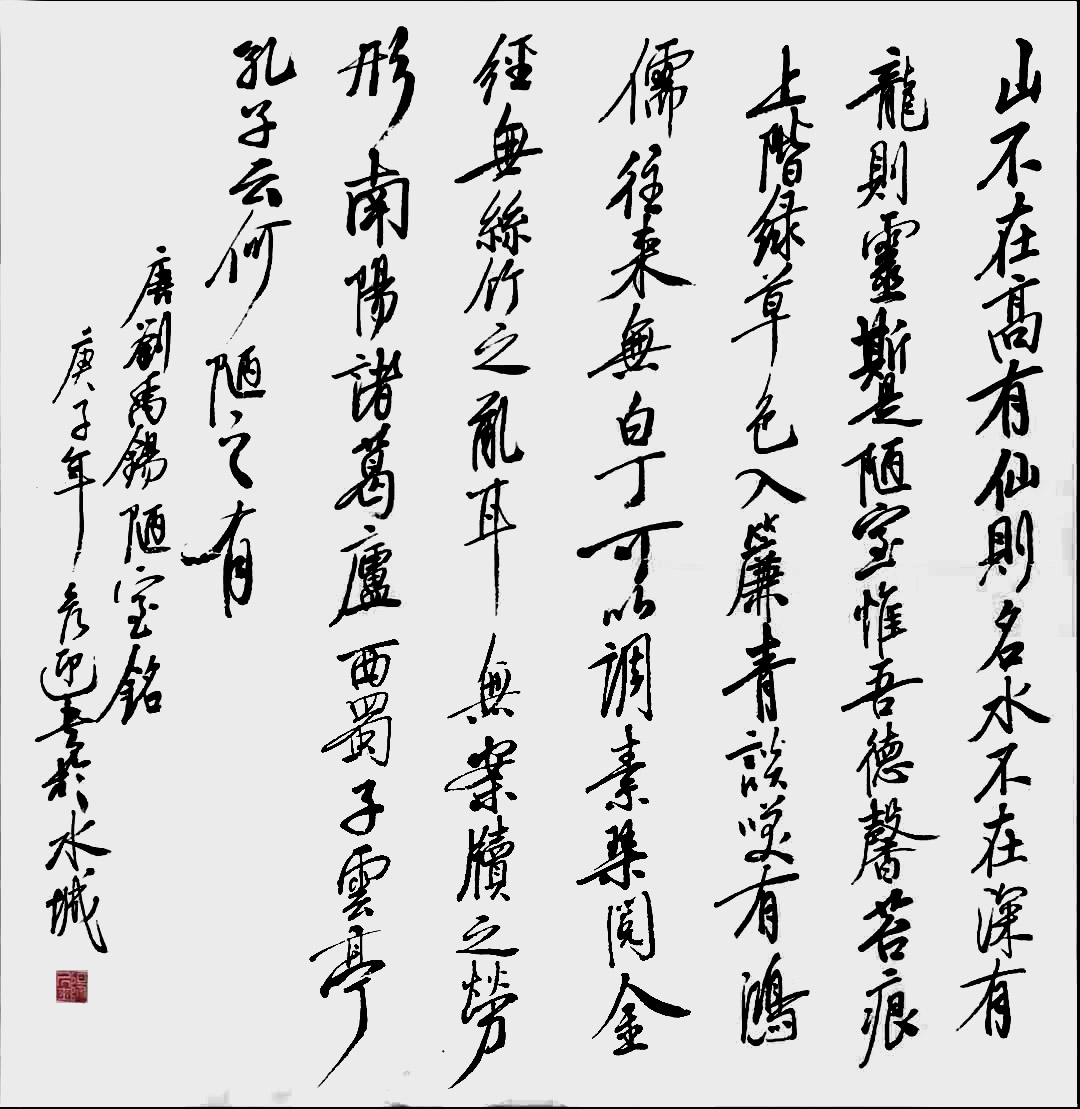 山不在髙有仙則名水不在深有
龍則靈斯是陋室惟吾德馨苔痕
上階緑草色入簾青談咲有鴻
儒往来無白丁可以調素琹閲金
經無絲竹之亂耳無案牘之勞
形南陽諸葛廬西蜀子雲亭
孔子云何陋之有
唐劉禹錫陋室銘
庚子年彦迎書於水城